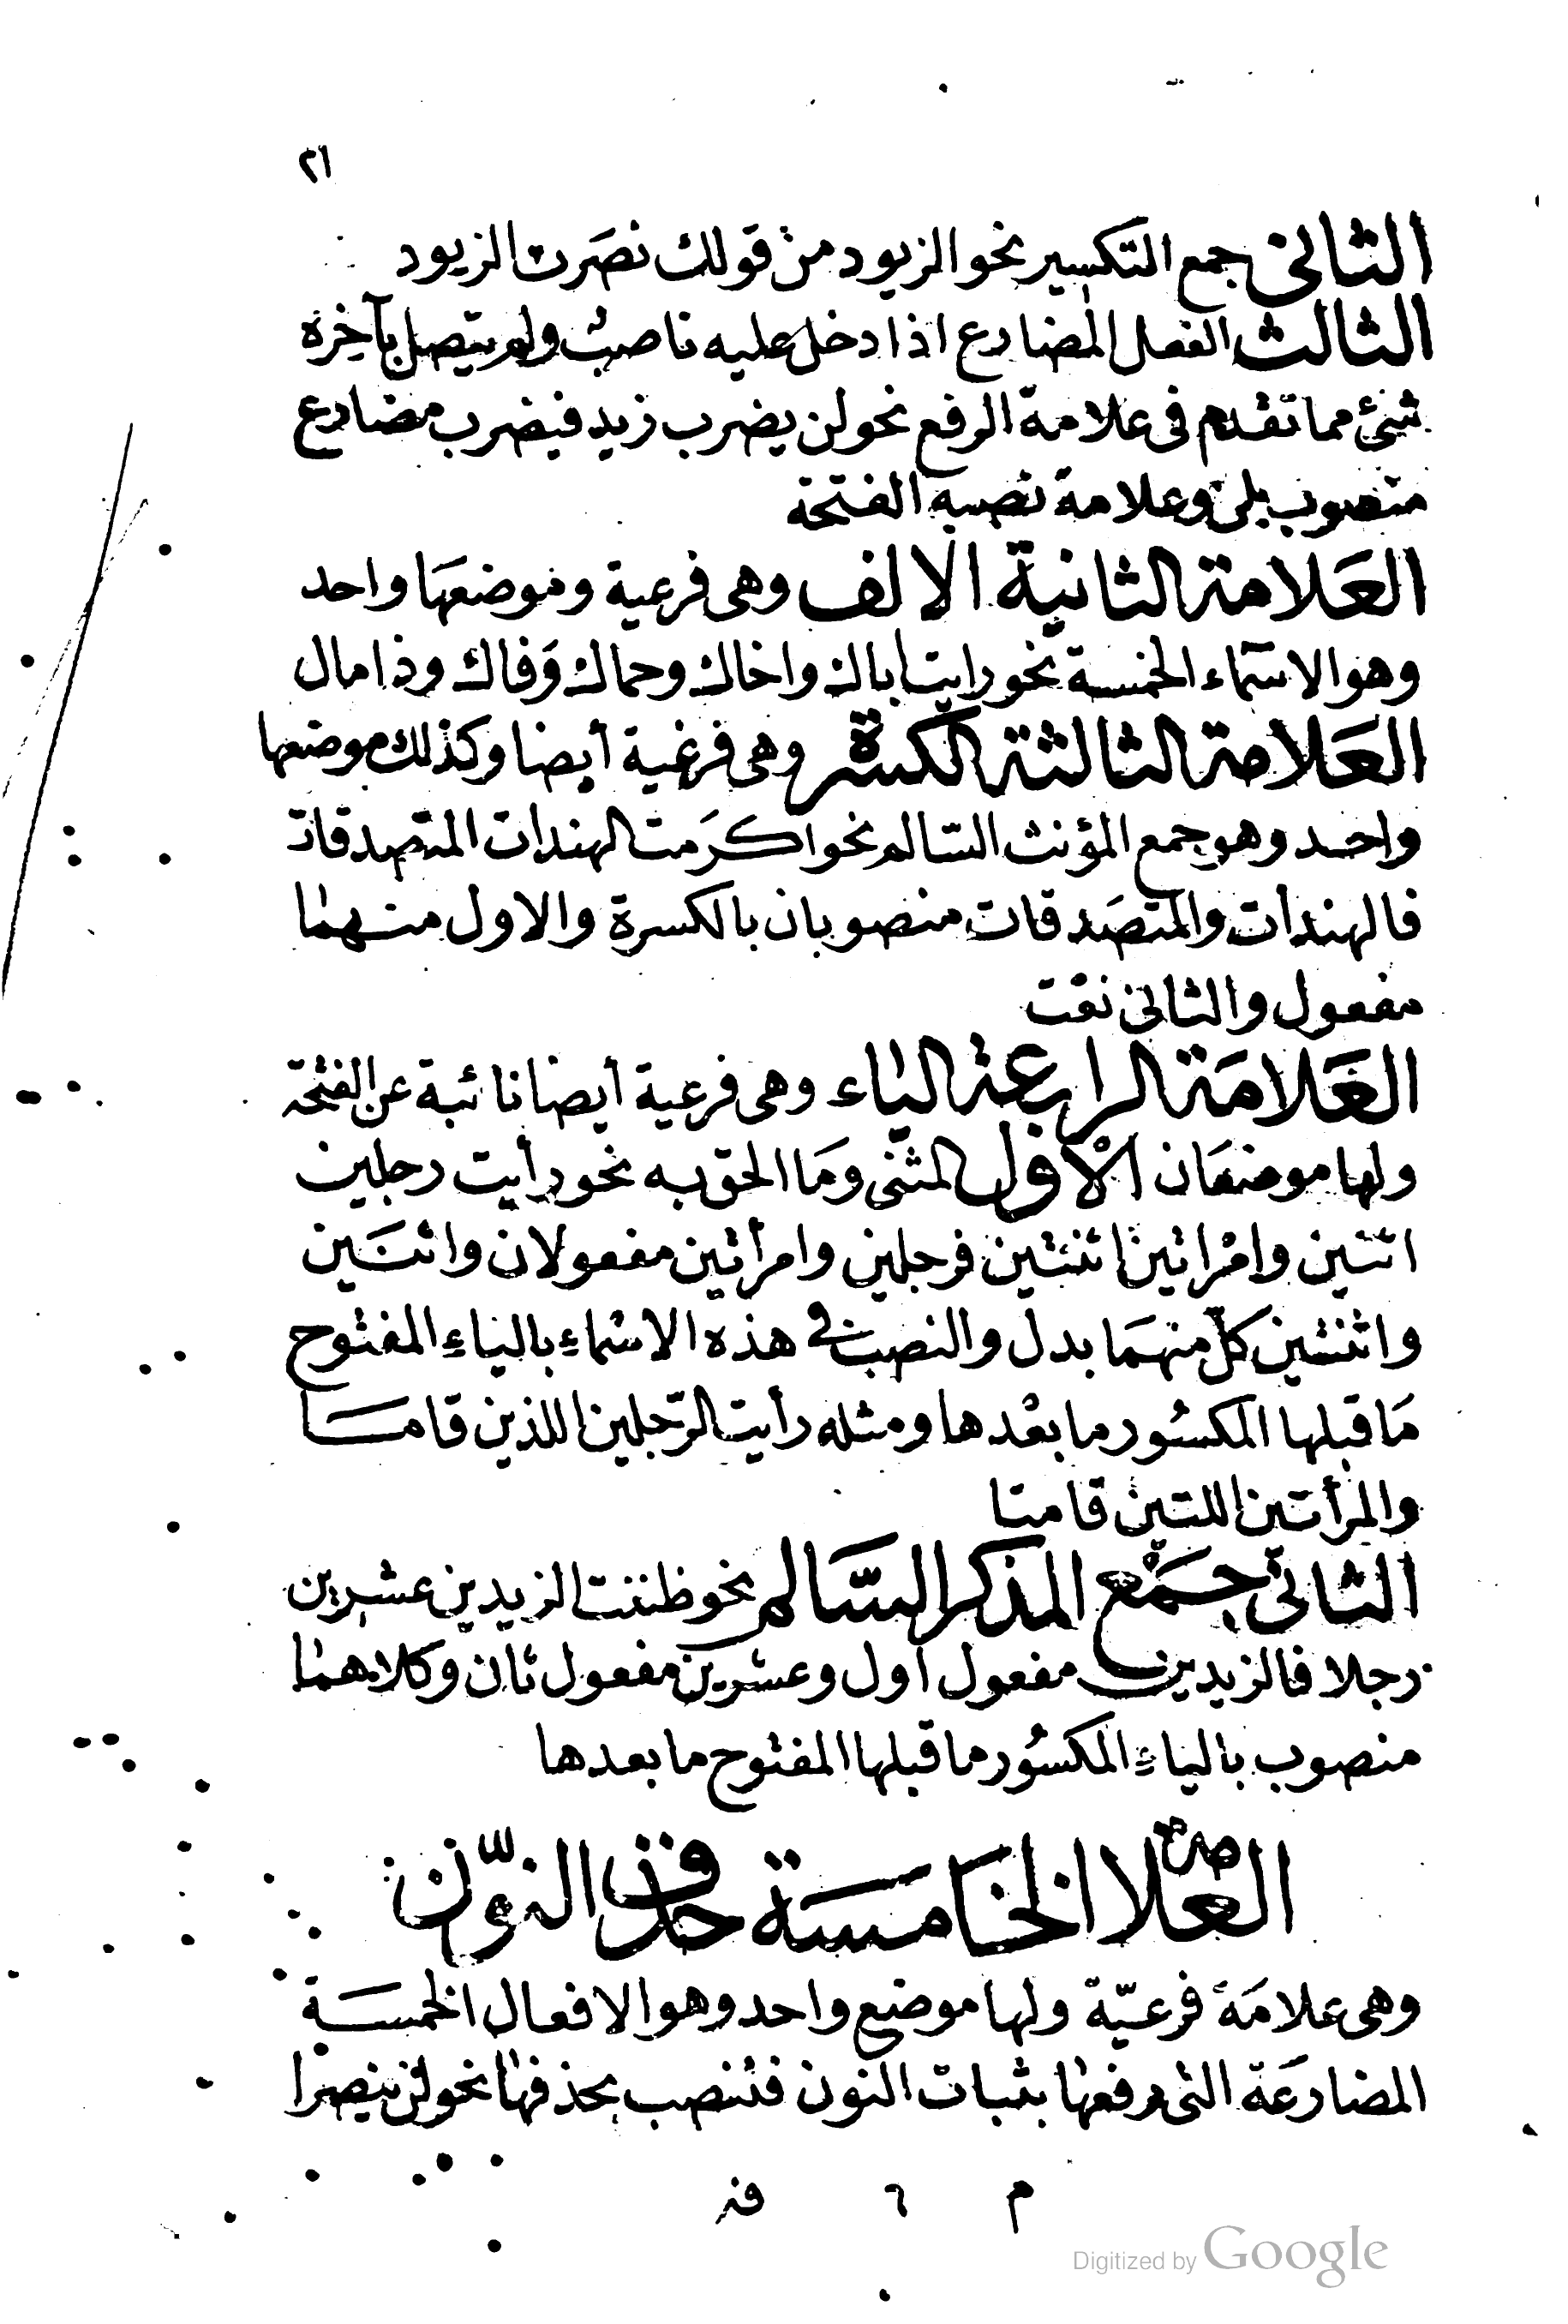 ٢١
الثانى جمع التكسير نحو الزيود من قولك نصَرت الزيود
الثالث الفعل المضارع اذا دخل عليه ناصب ولم يتصل بآخِرة
شئ مما تقدم فى علامة الرفع نحو لن يضرب زيد فيضرب مضارع
منصوب بلن وعلامة نصبه الفتحة
العَلامة الثانية الالف وهى فرعية وموضعهَا واحد
وهو الاسمآء الخمسة نحو رايت اباك واخاك وحماك وَفاك وذا مال
العَلامة الثالثة الكسرة وهى فرعية أيضا وكذلك موضعها
واحد وهو جمع المؤنث السّالم نحو اكرَمت الهندات المتصدقات
فالهندات والمتصَدقات منصوبان بالكسرة والاول منهما
مفعول والثانى نعت
العَلامَة الرابعة الياء وهى فرعية أيضا نائبة عن الفتحة
ولها موضعَان الأول المثنى ومَا الحق به نحو رأيت رجلين
اثنين وامْراتين اثنتين فرجلين وامرأتين مفعولان واثنَين
واثنتين كلّ منهمَا بدل والنصب فى هذه الاسْماءِ بالياءِ المفتوح
مَا قبلها المكسُور ما بعْدها ومثله رأيت الرّجلين اللذين قامَا
والمرأتين اللتين قامتا
الثانى جمَع المذكر السَّالم نحو ظننت الزيدين عشرين
رجلا فالزيدين مفعول اول وعشرين مفعول ثان وكلاهما
منصوب بالياءِ المكسُور ما قبلها المفتوح ما بعدها
العلامة الخامسَة حذف النّون
وهى علامَة فرعيّة ولها موضع واحد وهو الافعال الخمسَة
المضارعَة التى رفعها بثبات النون فتنصب بحذفها نحو لن ينصرا
م ٦ فر
Digitized by Google